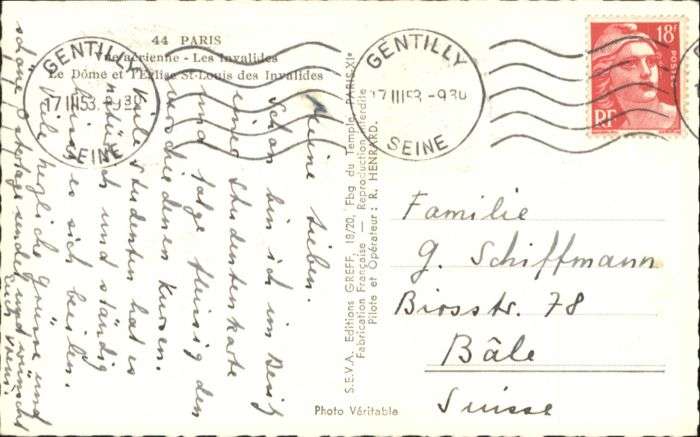 44 PARIS
Vue aérienne - Les Invalides
Le Dôme et l'Eglise St-Louis des Invalides
GENTILLY
17 III 53 - 930
SEINE
GENTILLY
17 III 53 - 930
SEINE
18F
POSTES
RF
Meine Lieben.
Schon bin ich im Besitz
einer Studentenkarte
und folge fleissig den
verschiedenen Kursen.
Viele Studenten hat es
natürlich und ständig
heisst es sich beeilen.
Viele herzliche Grüsse und
schöne Ostertage sendet und wünscht
Euch
S.E.V.A. Editions GREFF, 18/20, Fbg. du Temple, PARIS-XIe
Fabrication Française - Reproduction interdite
Pilote et Opérateur : R. HENRARD.
Familie
G. Schiffmann
Birsstr. 78
Bâle
Suisse
Photo Véritable